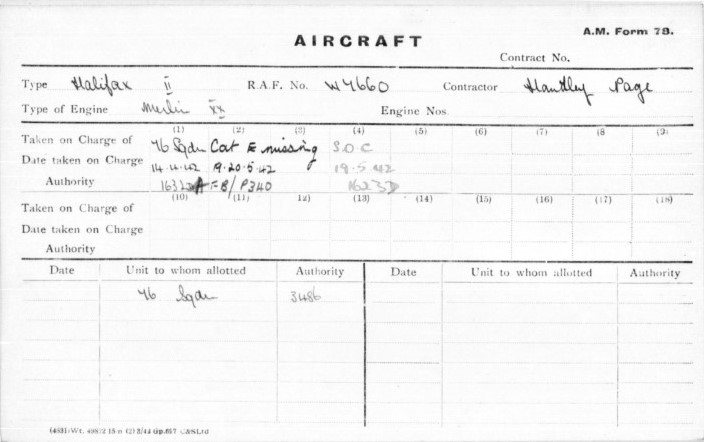 A.M. Form 78.
AIRCRAFT
Contract No.
Type Halifax II R.A.F. No. W7660 Contractor Handley Page
Type of Engine Merlin XX Engine Nos.
(1) (2) (3) (4) (5) (6) (7) (8 (9)
Taken on Charge of 76 Sqdn Cat E missing S.O.C
Date taken on Charge 14.4.42 19.20.5.42 19.5.42
Authority FB/P340 1623D
(10) (11) 12) (13) (14) (15) (16) (17) (18)
Taken on Charge of
Date taken on Charge
Authority
Date Unit to whom allotted Authority Date Unit to whom allotted Authority
76 Sqdn 3486
Gp.657 CASLtd